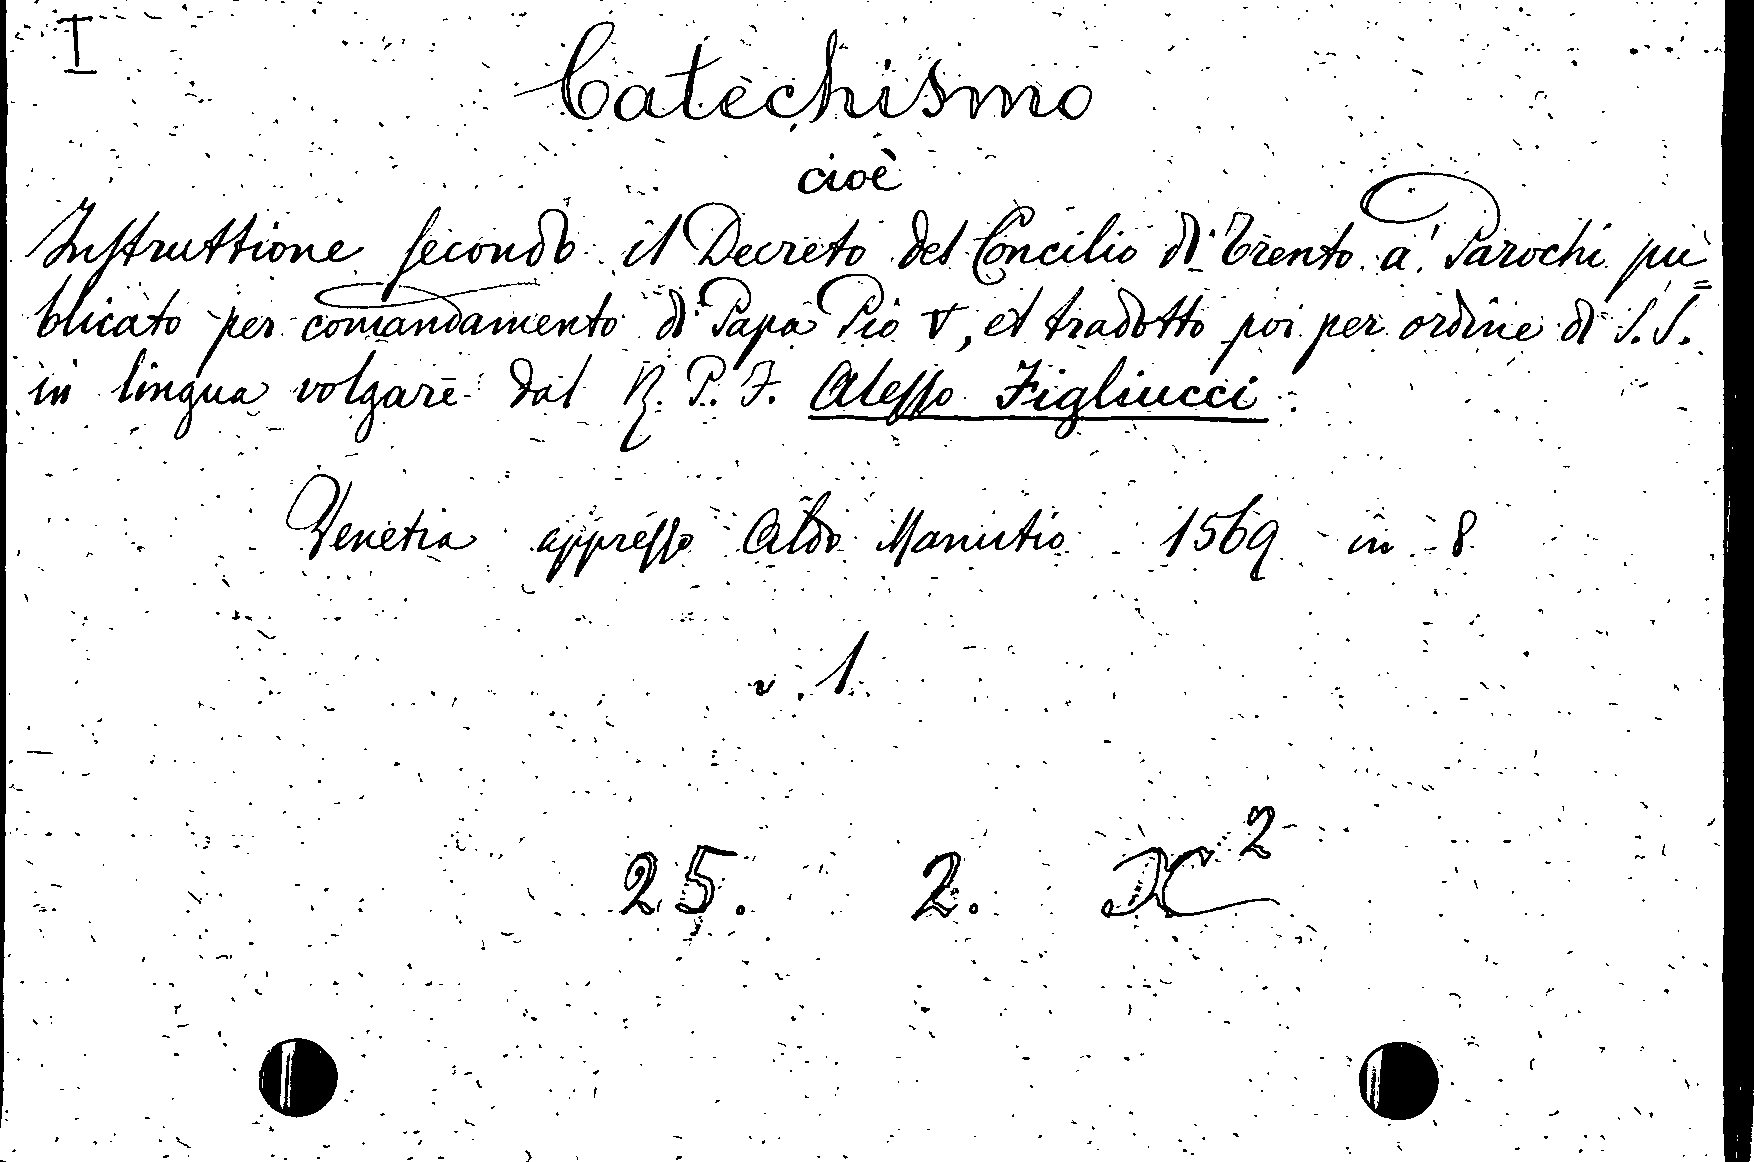 I
Catechismo
cioè
Instruttione secondo il Decreto del Concilio di Trento a' Parochi pu=
blicato per comandamento di Papa Pio V, et tradotto poi per ordine di S.S.
in lingua volgare dal R. P. F. Alesso Figliucci.
Venetia appresso Aldo Manutio 1569 in 8
v. 1.
25. 2. X²